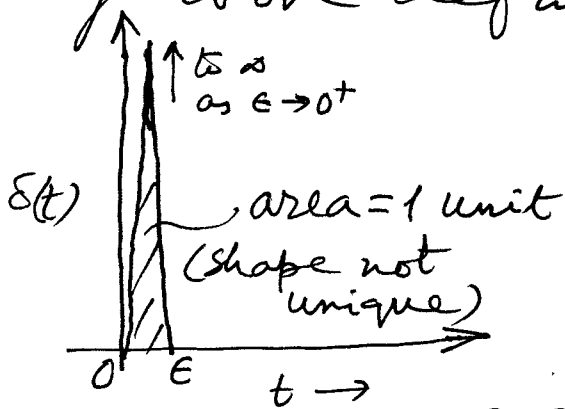 ↑ to ∞
as ε → 0⁺
δ(t)
area = 1 unit
(shape not
unique)
0 ε
t →